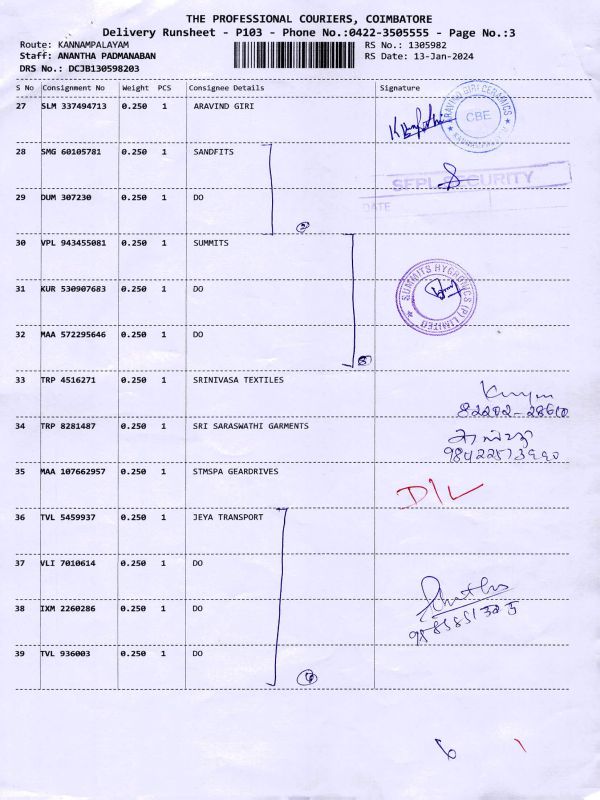 THE PROFESSIONAL COURIERS, COIMBATORE
Delivery Runsheet - P103 - Phone No.:0422-3505555 - Page No.:3
Route: KANNAMPALAYAM RS No.: 1305982
Staff: ANANTHA PADMANABAN RS Date: 13-Jan-2024
DRS No.: DCJB130598203
S No Consignment No Weight PCS Consignee Details Signature
27 SLM 337494713 0.250 1 ARAVIND GIRI
ARAVIND GIRI CERAMICS
CBE
28 SMG 60105781 0.250 1 SANDFITS
SFPL SECURITY
29 DUM 307230 0.250 1 DO
DATE
30 VPL 943455081 0.250 1 SUMMITS
31 KUR 530907683 0.250 1 DO
SUMMITS HYGRONICS (P) LIMITED
32 MAA 572295646 0.250 1 DO
33 TRP 4516271 0.250 1 SRINIVASA TEXTILES
82202-28610
34 TRP 8281487 0.250 1 SRI SARASWATHI GARMENTS
35 MAA 107662957 0.250 1 STMSPA GEARDRIVES
D/L
36 TVL 5459937 0.250 1 JEYA TRANSPORT
37 VLI 7010614 0.250 1 DO
38 IXM 2260286 0.250 1 DO
39 TVL 936003 0.250 1 DO